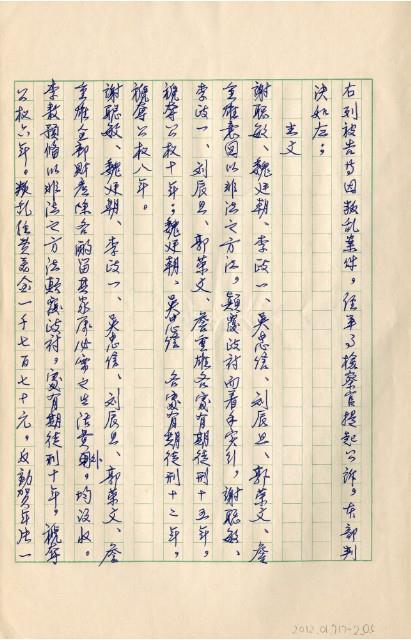 右列被告等因叛亂案件，經軍事檢察官提起公訴，本部判
決如左：
主文
謝聰敏、魏廷朝、李政一、吳忠信、刘辰旦、郭荣文、詹
重雄意圖以非法之方法，顛覆政府而着手实行，謝聰敏、
李政一、刘辰旦、郭荣文、詹重雄各處有期徒刑十五年，
褫奪公权十年；魏廷朝、吳忠信各處有期徒刑十二年，
褫奪公权八年。
謝聰敏、魏廷朝、李政一、吳忠信、刘辰旦、郭荣文、詹
重雄全部財產除各酌留其家屬必需之生活費外，均没收。
李敖預備以非法之方法顛覆政府，處有期徒刑十年，褫奪
公权六年。叛乱經費美金一千七百七十元，及勳賀年卡一
2012.01.717-205